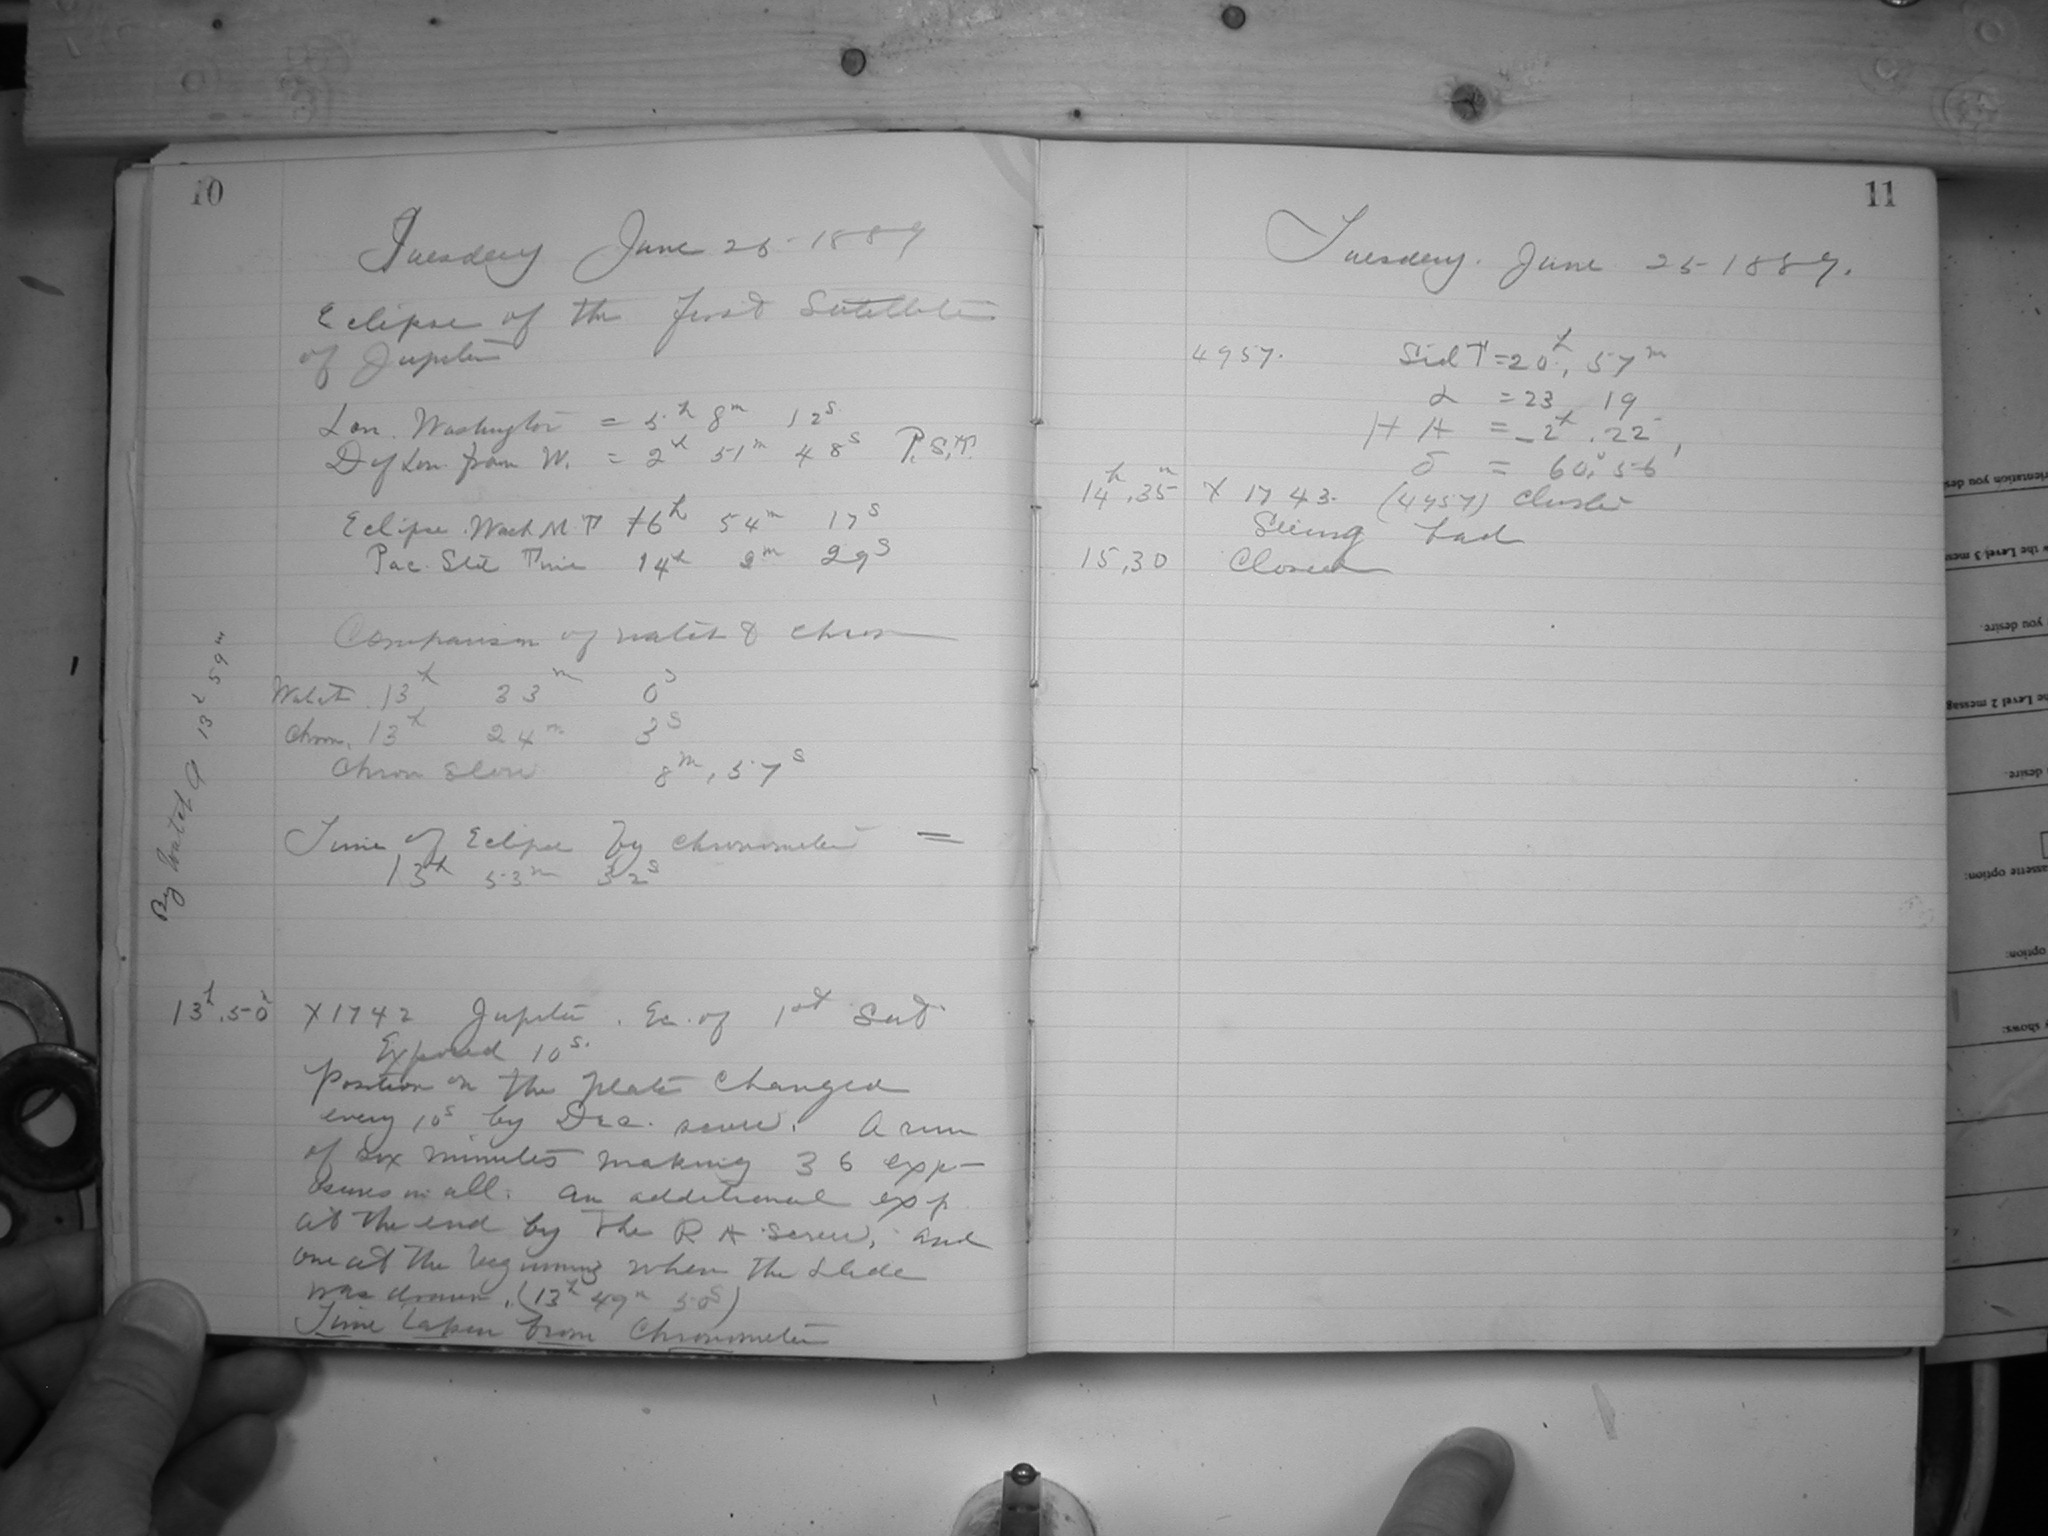 10
Tuesday June 25 - 1889
Eclipse of the first Satellite
of Jupiter
Lon. Washington = 5h 8m 12s
D of Lon. from W. = 2h 51m 48s P.S.T.
Eclipse Wash M.T 16h 54m 17s
Pac. Std Time 14h 2m 29s
Comparison of watch & chron
Watch 13h 33m 0s
Chron. 13h 24m 3s
Chron Slow 8m, 57s
Time of Eclipse by chronometer =
13h 53m 32s
By Watch 13h 59m
13h.50 X1742 Jupiter. Ec. of 1st Sat
Exposed 10s.
Position on the plate changed
every 10s by Dec. screw. A run
of six minutes making 36 exp-
osures in all. An additional exp
at the end by the R A screw, and
one at the beginning when the slide
was drawn. (13h 49m 50s)
Time taken from Chronometer
11
Tuesday. June 25 - 1889.
4957. Sid T = 20h, 57m
α = 23 19
H A = -2h.22
δ = 60°, 56'
14h,35m X 1743. (4957) Cluster
Seeing bad
15,30 Closed
rientation you des
w the Level 3 mess
you desire.
he Level 2 messag
desire.
assette option:
option:
y shows: